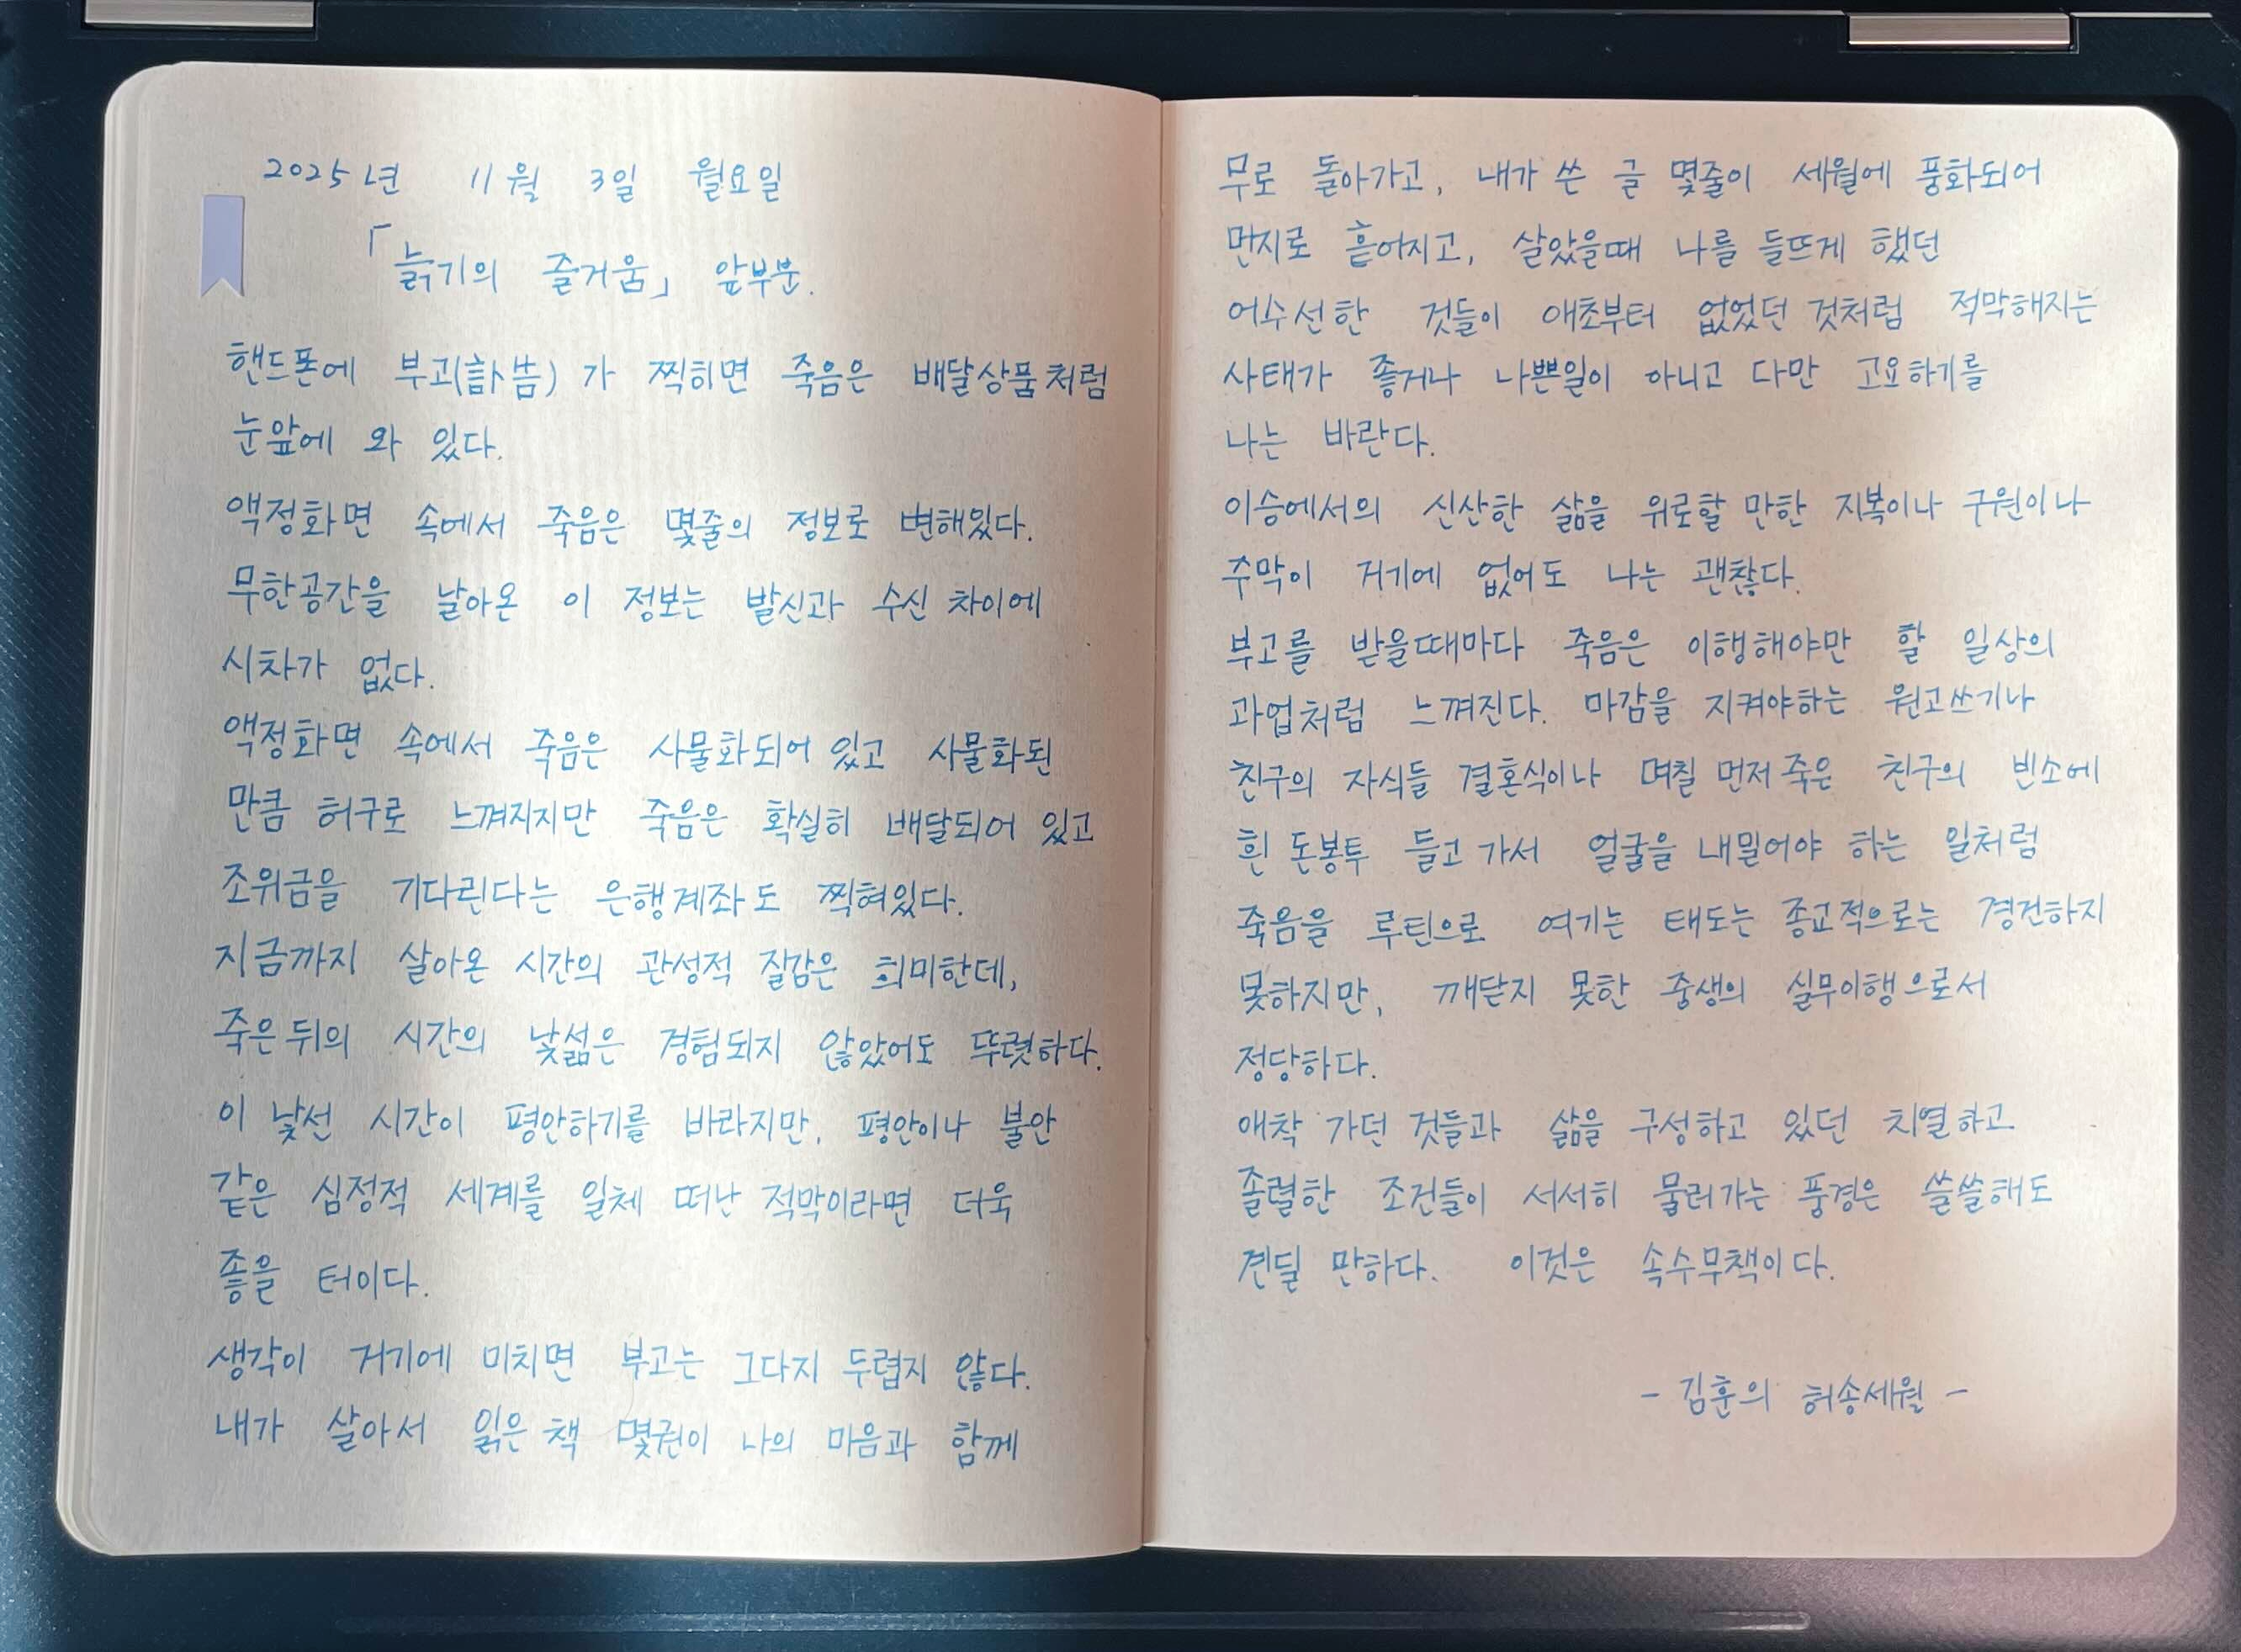 2025년 11월 3일 월요일
「늙기의 즐거움」 앞부분.
핸드폰에 부고(訃告)가 찍히면 죽음은 배달상품처럼
눈앞에 와 있다.
액정화면 속에서 죽음은 몇줄의 정보로 변해있다.
무한공간을 날아온 이 정보는 발신과 수신 차이에
시차가 없다.
액정화면 속에서 죽음은 사물화되어 있고 사물화된
만큼 허구로 느껴지지만 죽음은 확실히 배달되어 있고
조위금을 기다린다는 은행계좌도 찍혀있다.
지금까지 살아온 시간의 관성적 질감은 희미한데,
죽은 뒤의 시간의 낯섦은 경험되지 않았어도 뚜렷하다.
이 낯선 시간이 평안하기를 바라지만, 평안이나 불안
같은 심정적 세계를 일체 떠난 적막이라면 더욱
좋을 터이다.
생각이 거기에 미치면 부고는 그다지 두렵지 않다.
내가 살아서 읽은 책 몇권이 나의 마음과 함께
무로 돌아가고, 내가 쓴 글 몇줄이 세월에 풍화되어
먼지로 흩어지고, 살았을때 나를 들뜨게 했던
어수선한 것들이 애초부터 없었던 것처럼 적막해지는
사태가 좋거나 나쁜일이 아니고 다만 고요하기를
나는 바란다.
이승에서의 신산한 삶을 위로할 만한 지복이나 구원이나
주막이 거기에 없어도 나는 괜찮다.
부고를 받을때마다 죽음은 이행해야만 할 일상의
과업처럼 느껴진다. 마감을 지켜야하는 원고쓰기나
친구의 자식들 결혼식이나 며칠 먼저 죽은 친구의 빈소에
흰 돈봉투 들고 가서 얼굴을 내밀어야 하는 일처럼
죽음을 루틴으로 여기는 태도는 종교적으로는 경건하지
못하지만, 깨닫지 못한 중생의 실무이행으로서
정당하다.
애착 가던 것들과 삶을 구성하고 있던 치열하고
졸렬한 조건들이 서서히 물러가는 풍경은 쓸쓸해도
견딜 만하다. 이것은 속수무책이다.
- 김훈의 허송세월 -